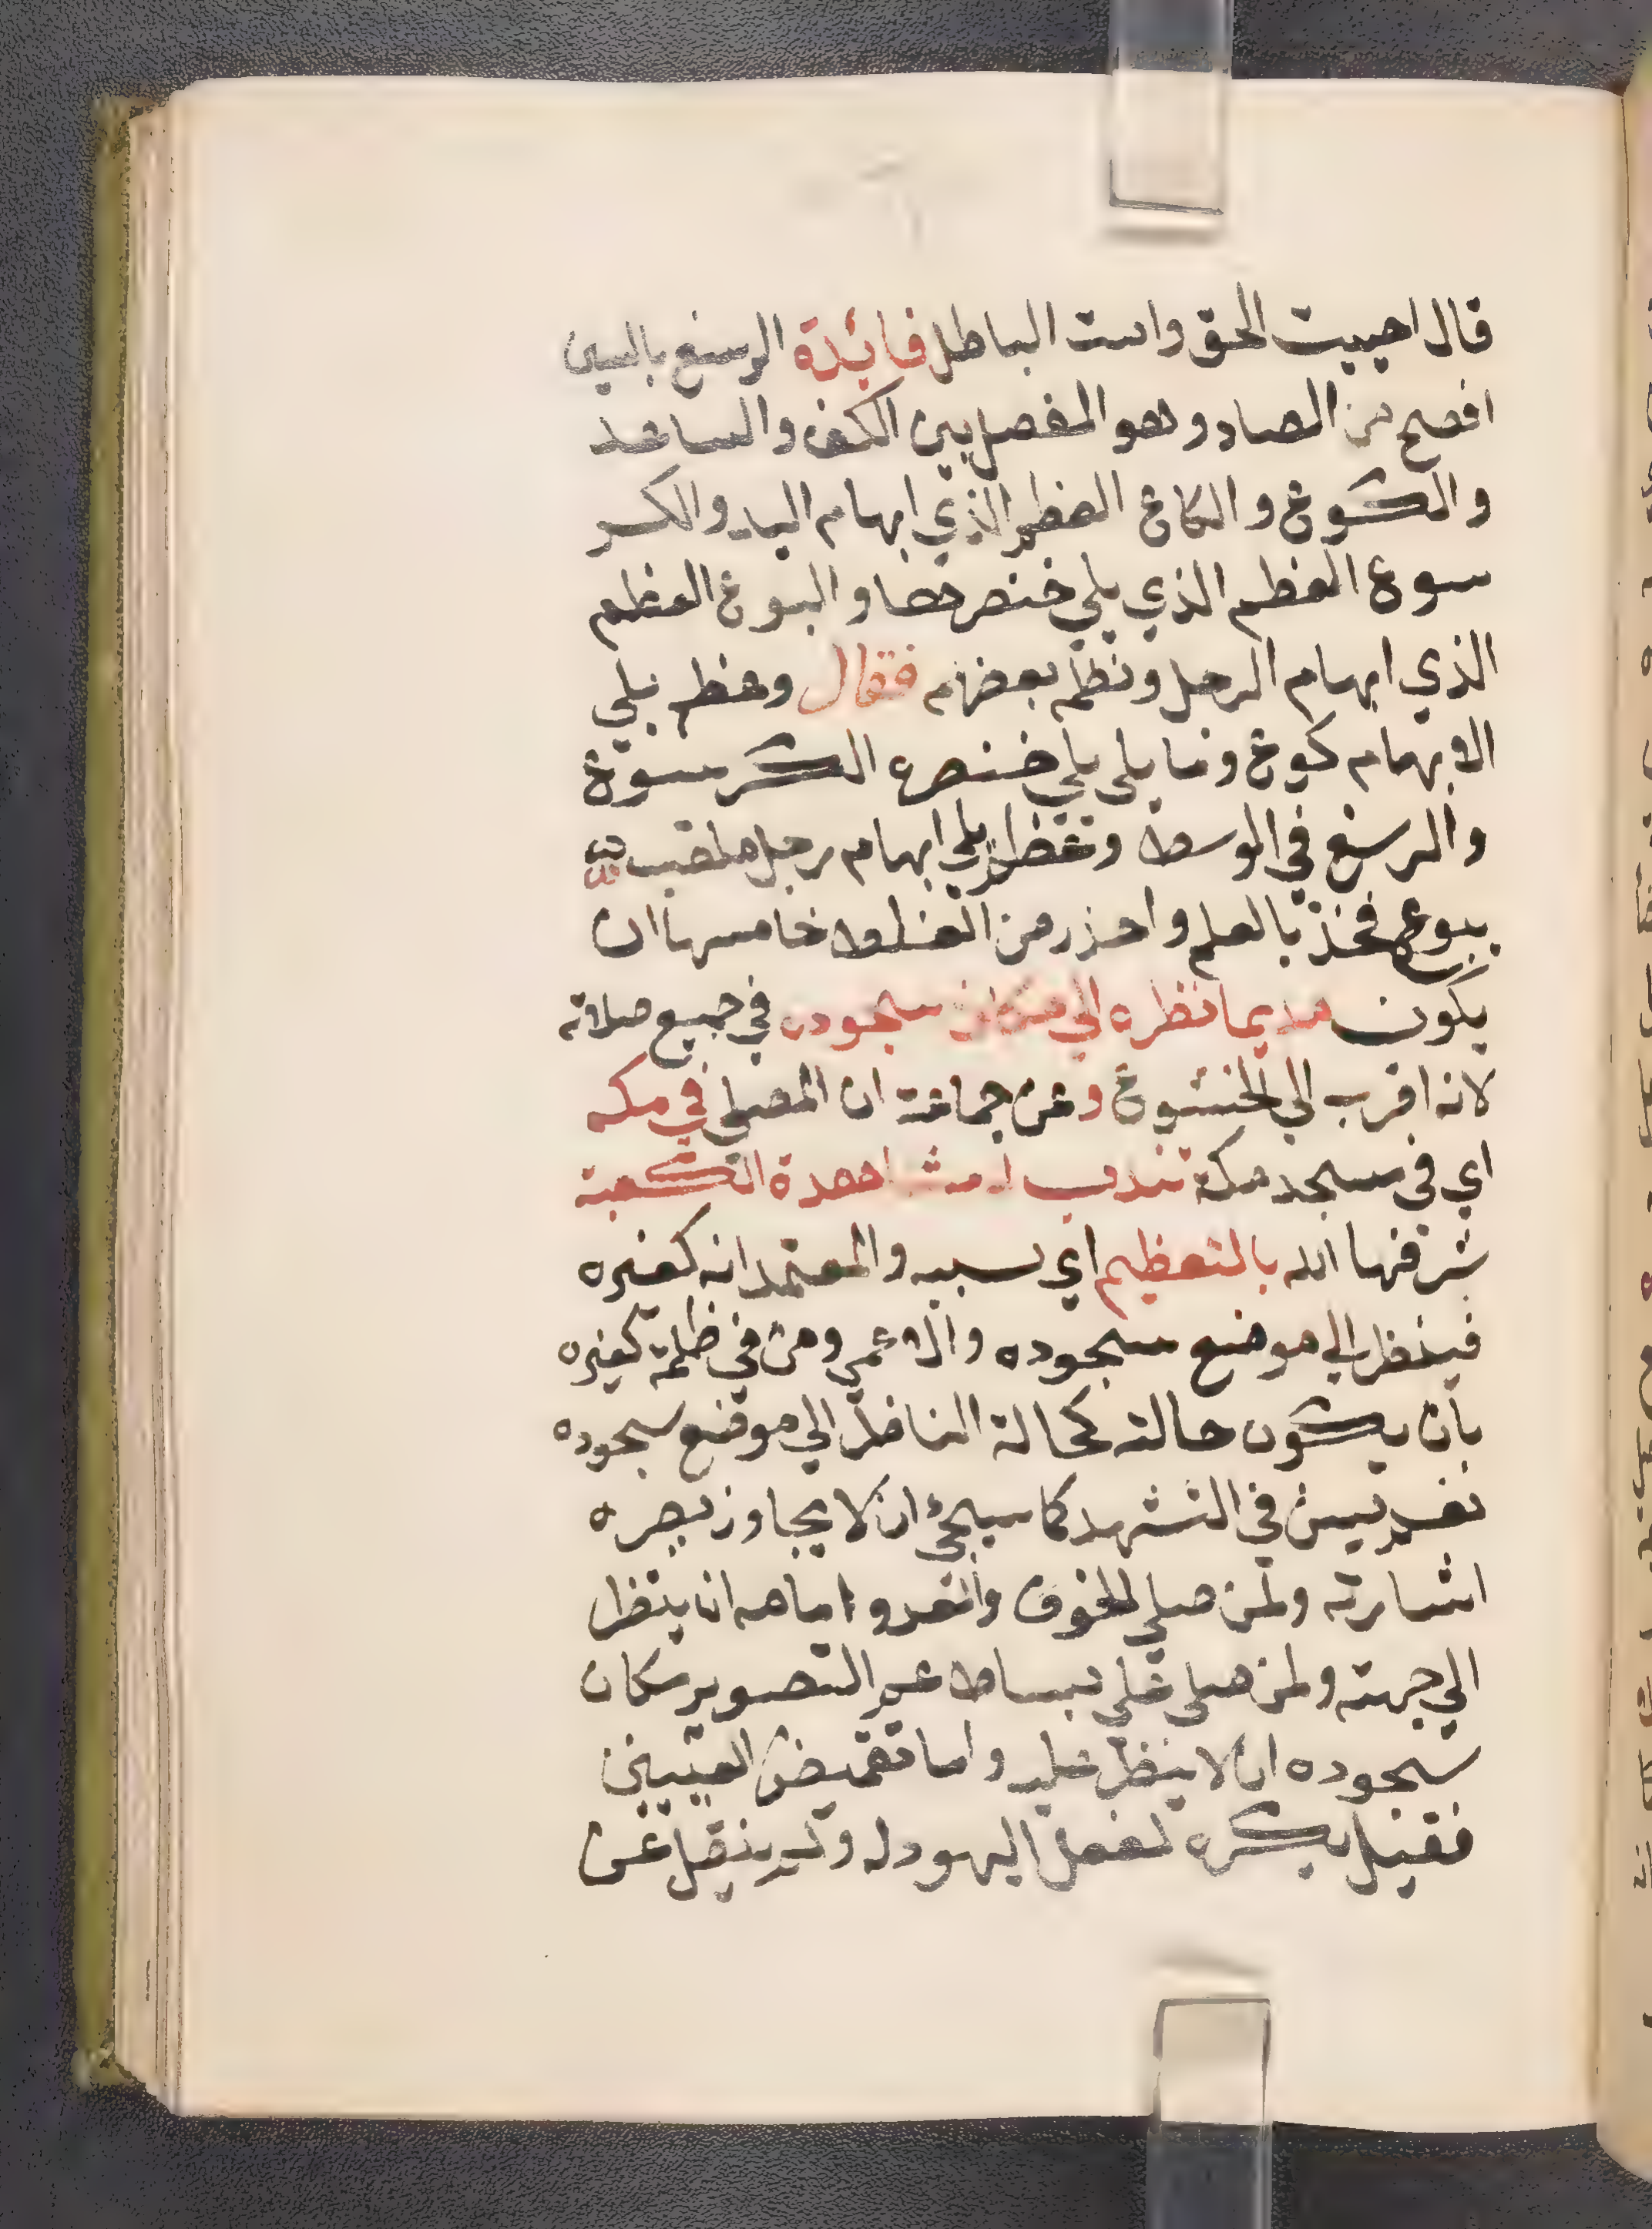 قال احييت الحق وامت الباطل فائدة الرسغ بالسين
افصح من الصاد وهو المفصل بين الكف والساعد
والكوع والكاع العظم الذي ابهام اليد والكر
سوع العظم الذي يلي خنصرها والبوع العظم
الذي ابهام الرجل ونظم بعضهم فقال وعظم يلي
الابهام كوع وما يلي يلي خنصره الكرسوع
والرسغ في الوسط وعظم يلي ابهام رجل ملقب
ببوع فخذ بالعلم واحذر من الغلط خامسها ان
يكون مديما نظره الي مكان سجوده في جميع صلاته
لانه اقرب الي الخشوع وعن جماعة ان المصلي في مكه
اي في مسجد مكة تندب له مشاهدة الكعبة
شرفها الله بالتعظيم اي بسببه والمعتمد انه كغيره
فينظر الي موضع سجوده والاعمي ومن في ظلمة كغيره
بان يكون حالته كحالة الناظر الي موضع سجوده
نعم يسن في التشهد كما سيجئ ان لا يجاوز بصره
اشارته ولمن صلي للخوف والعدو امامه ان ينظر
الي جهته ولمن صلي علي بساط عم التصوير مكان
سجوده ان لا ينظر عليه واما تغميض العينين
فقيل يكره لفعل اليهود له ولم ينقل عن